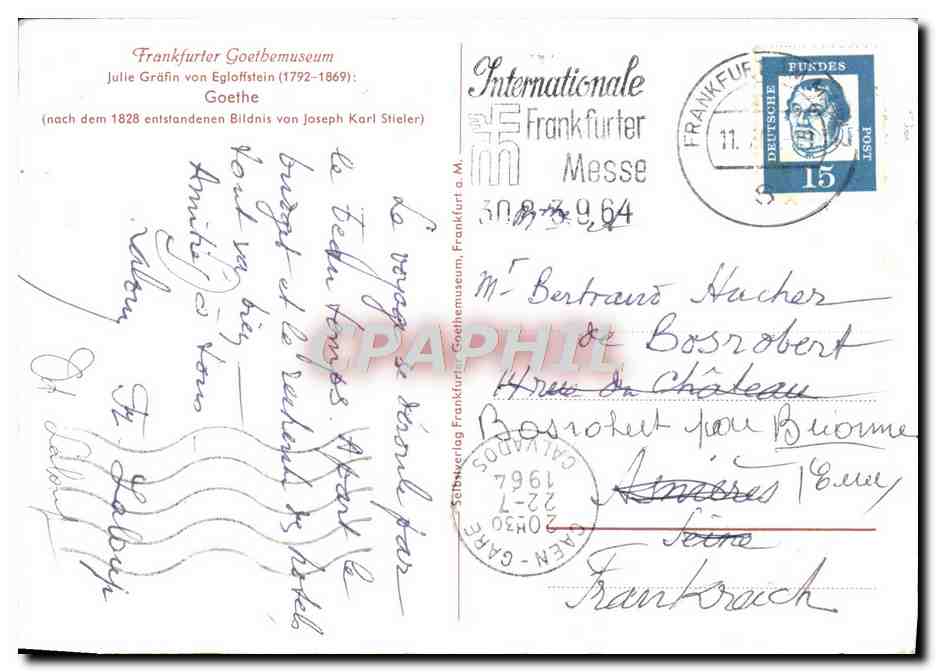 Frankfurter Goethemuseum
Julie Gräfin von Egloffstein (1792–1869):
Goethe
(nach dem 1828 entstandenen Bildnis von Joseph Karl Stieler)
Le voyage se déroule par
le beau temps. A part le
budget et le recherche des hotels
tout va bien
Amitiés à tous
Selbstverlag Frankfurter Goethemuseum, Frankfurt a. M.
Internationale
Frankfurter
Messe
30.8-3.9.64
FRANKFURT
11.
DEUTSCHE
BUNDES
POST
15
Mr Bertrand Hacher
de Bosrobert
14 rue du Château
Bosrobert par Brionne
Asnières (Eure)
Seine
Frankreich
CAEN-GARE
20H30
22-7
1964
CALVADOS
CPAPHIL